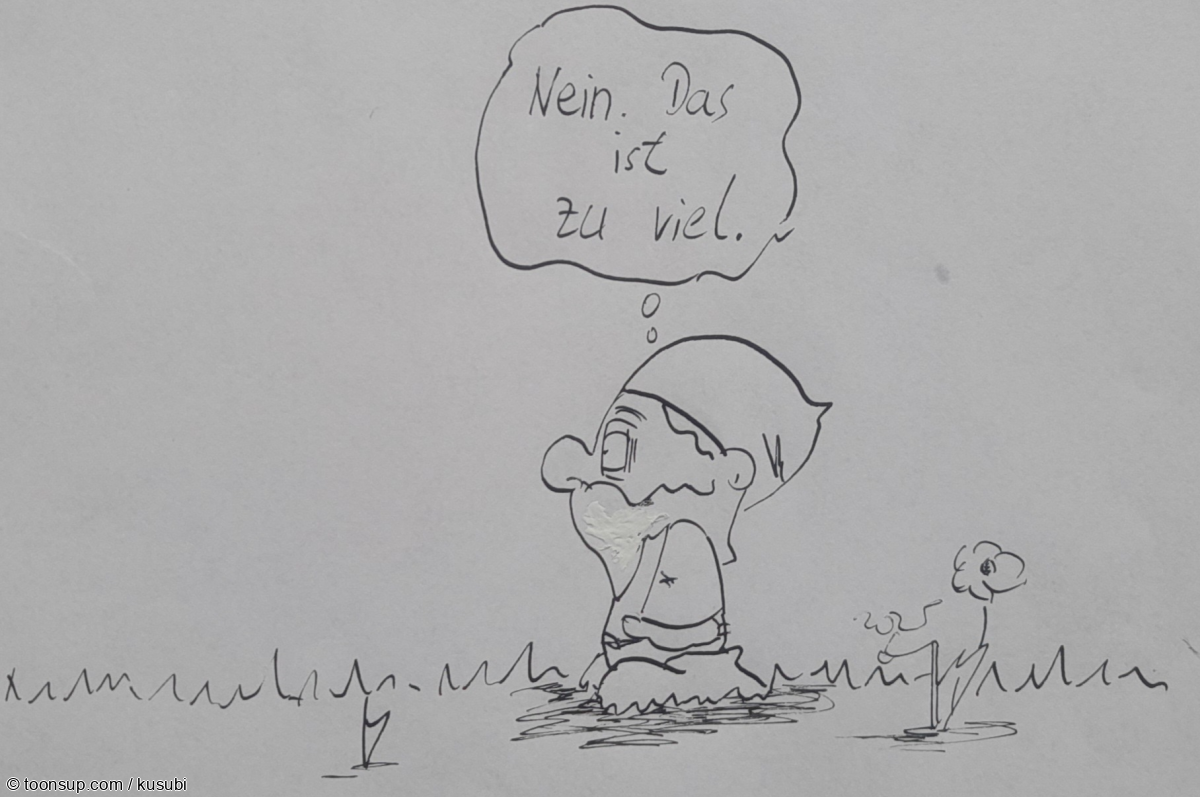 Nein. Das
ist
zu viel.
© toonsup.com / kusubi